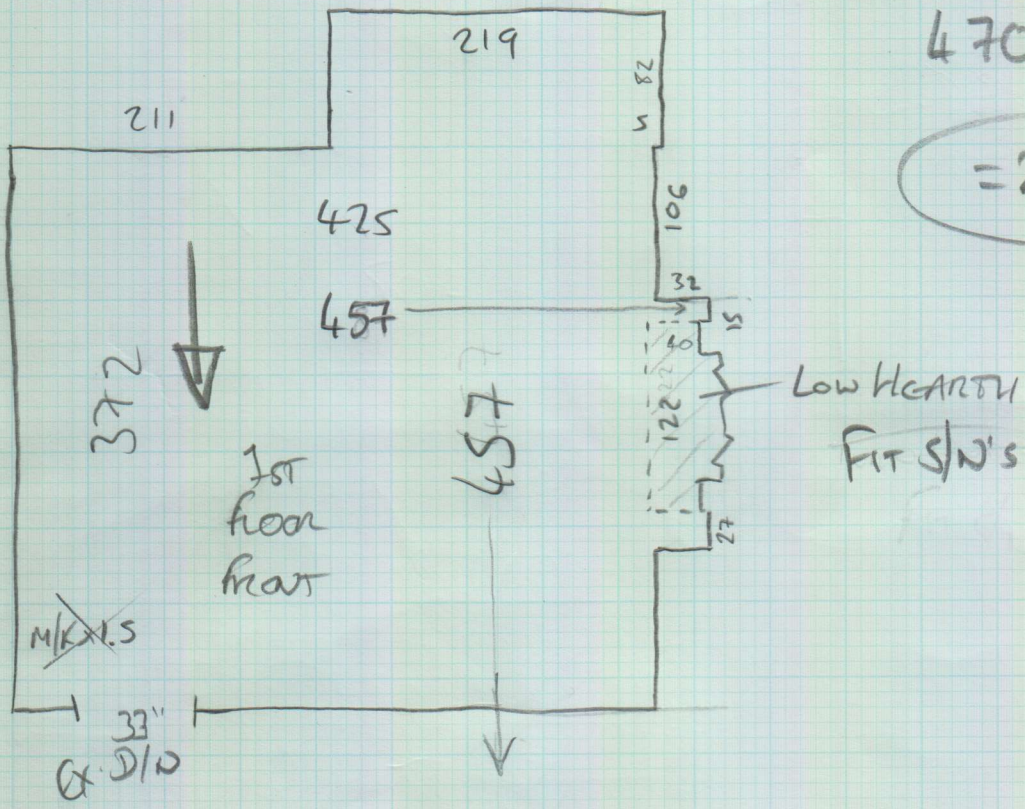 219
470
82
211
5
= 2
106
425
32
457
15
40
372
457
122
LOW HEARTH
FIT S/N'S
1ST
FLOOR
FRONT
27
M/K X1.5
33"
EX. D/N